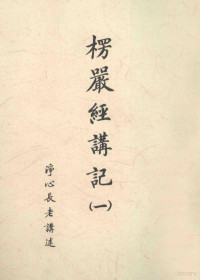 楞嚴經講記(一)
淨心長老講述